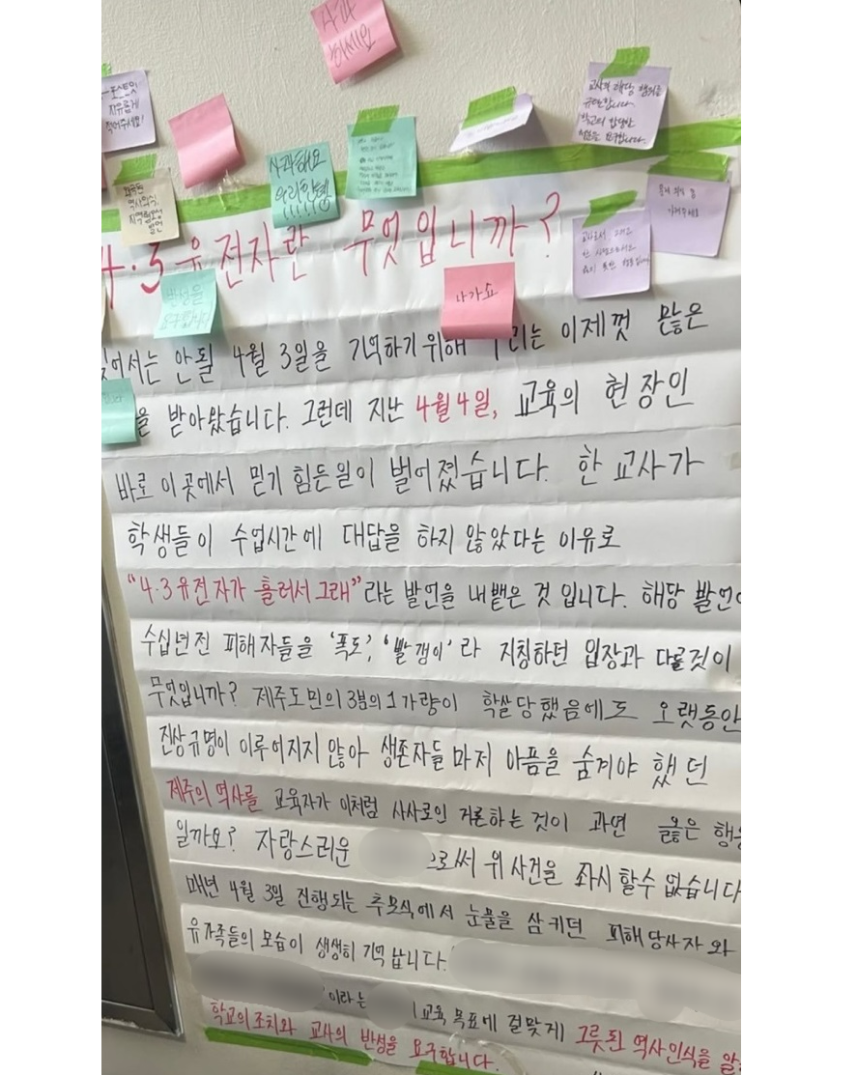 사과
하세요
포스트잇
자유롭게
적어주세요!
사과해요
우리한텤
(!!!!!)
교사의 해당 발언을
규탄합니다.
학교의 합당한
4·3 유전자란 무엇입니까?
반성을
요구합니다
나가요
잊어서는 안될 4월 3일을 기억하기위해 우리는 이제껏 많은
을 받아왔습니다. 그런데 지난 4월 4일, 교육의 현장인
바로 이곳에서 믿기 힘든일이 벌어졌습니다. 한 교사가
학생들이 수업시간에 대답을 하지 않았다는 이유로
"4·3 유전자가 흘러서 그래" 라는 발언을 내뱉은 것 입니다. 해당 발언
수십년전 피해자들을 '폭도', '빨갱이' 라 지칭하던 입장과 다를것이
무엇입니까? 제주도민의 3분의 1 가량이 학살당했음에도 오랫동안
진상규명이 이루어지지 않아 생존자들 마저 아픔을 숨겨야 했던
제주의 역사를 교육자가 이처럼 사사로인 거론하는 것이 과연 옳은 행
일까요? 자랑스러운 으로써 위 사건을 좌시 할수 없습니다
매년 4월 3일 진행되는 추모식에서 눈물을 삼키던 피해당사자와
유가족들의 모습이 생생히 기억 납니다.
'이라는 교육 목표에 걸맞게 그릇된 역사인식을
학교의 조치와 교사의 반성을 요구합니다.